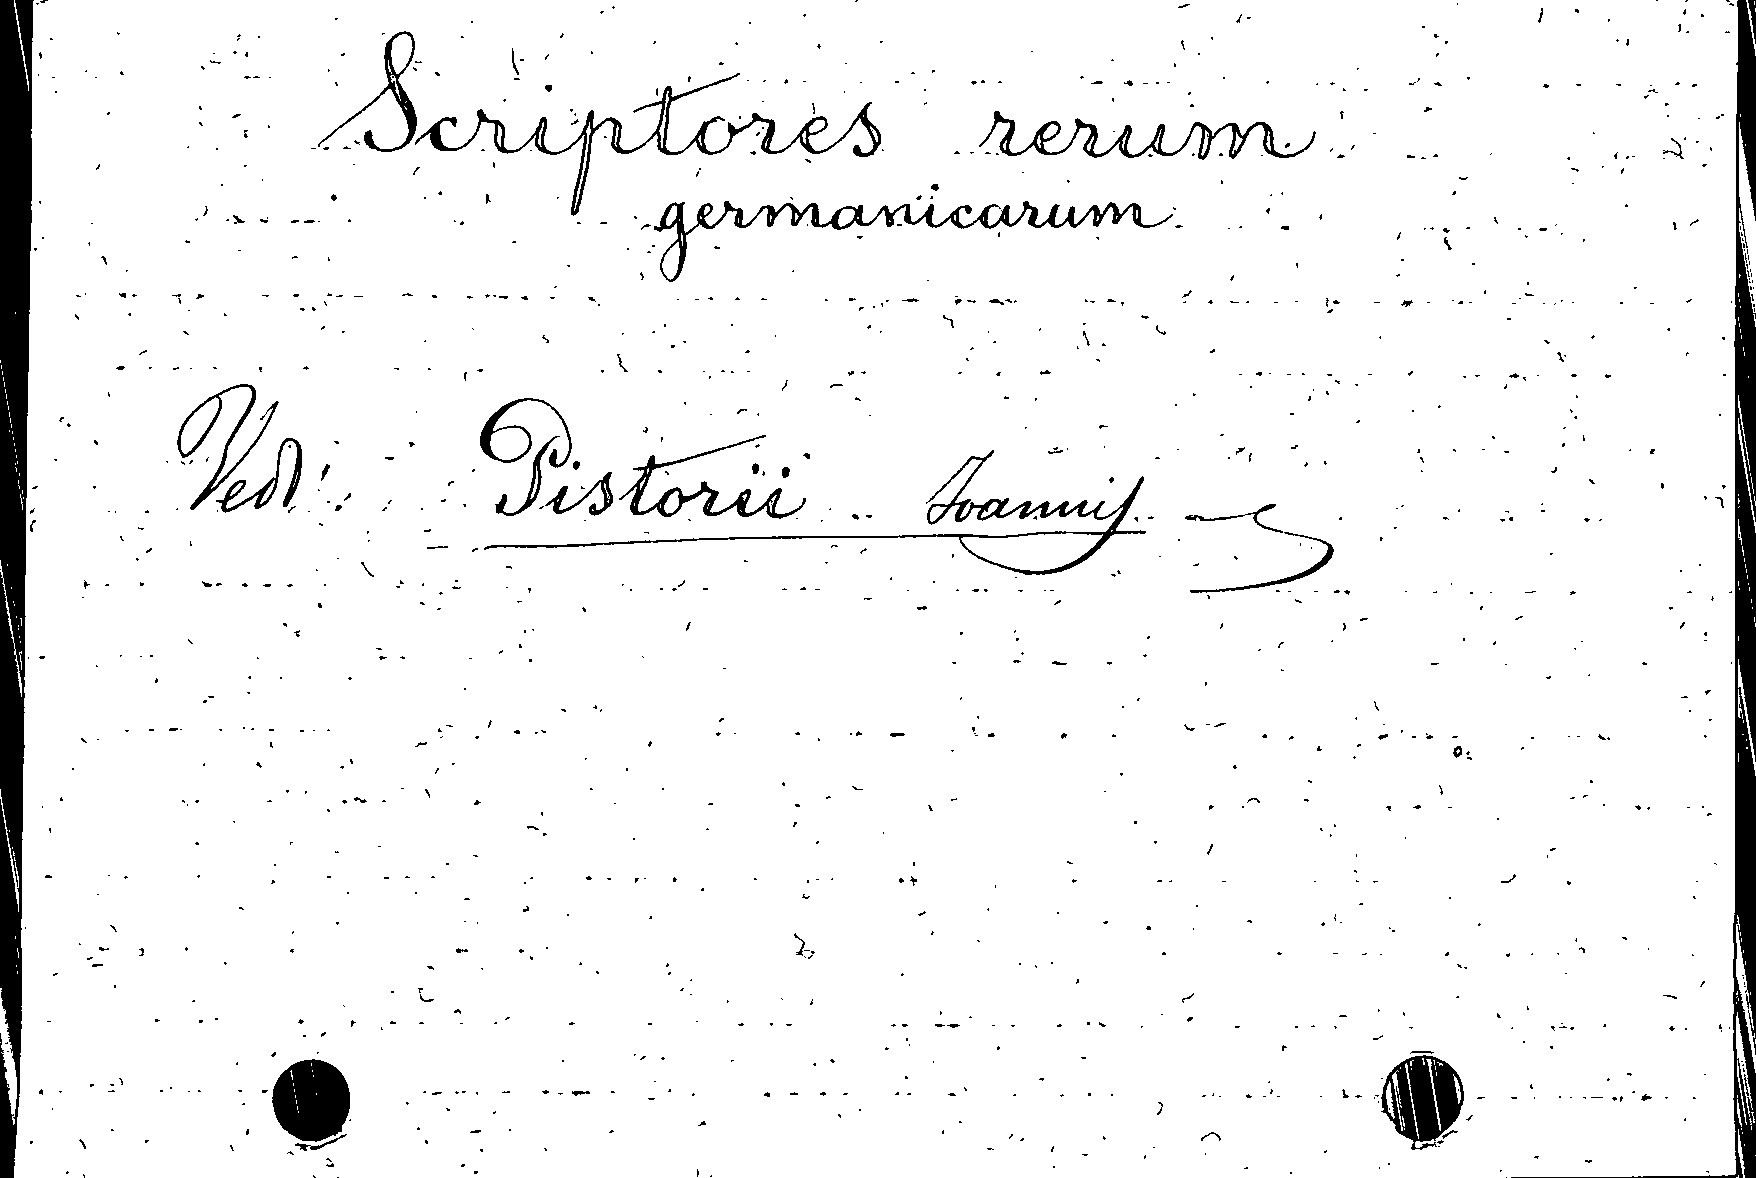 Scriptores rerum
germanicarum
Vedi: Pistorii Ioannis